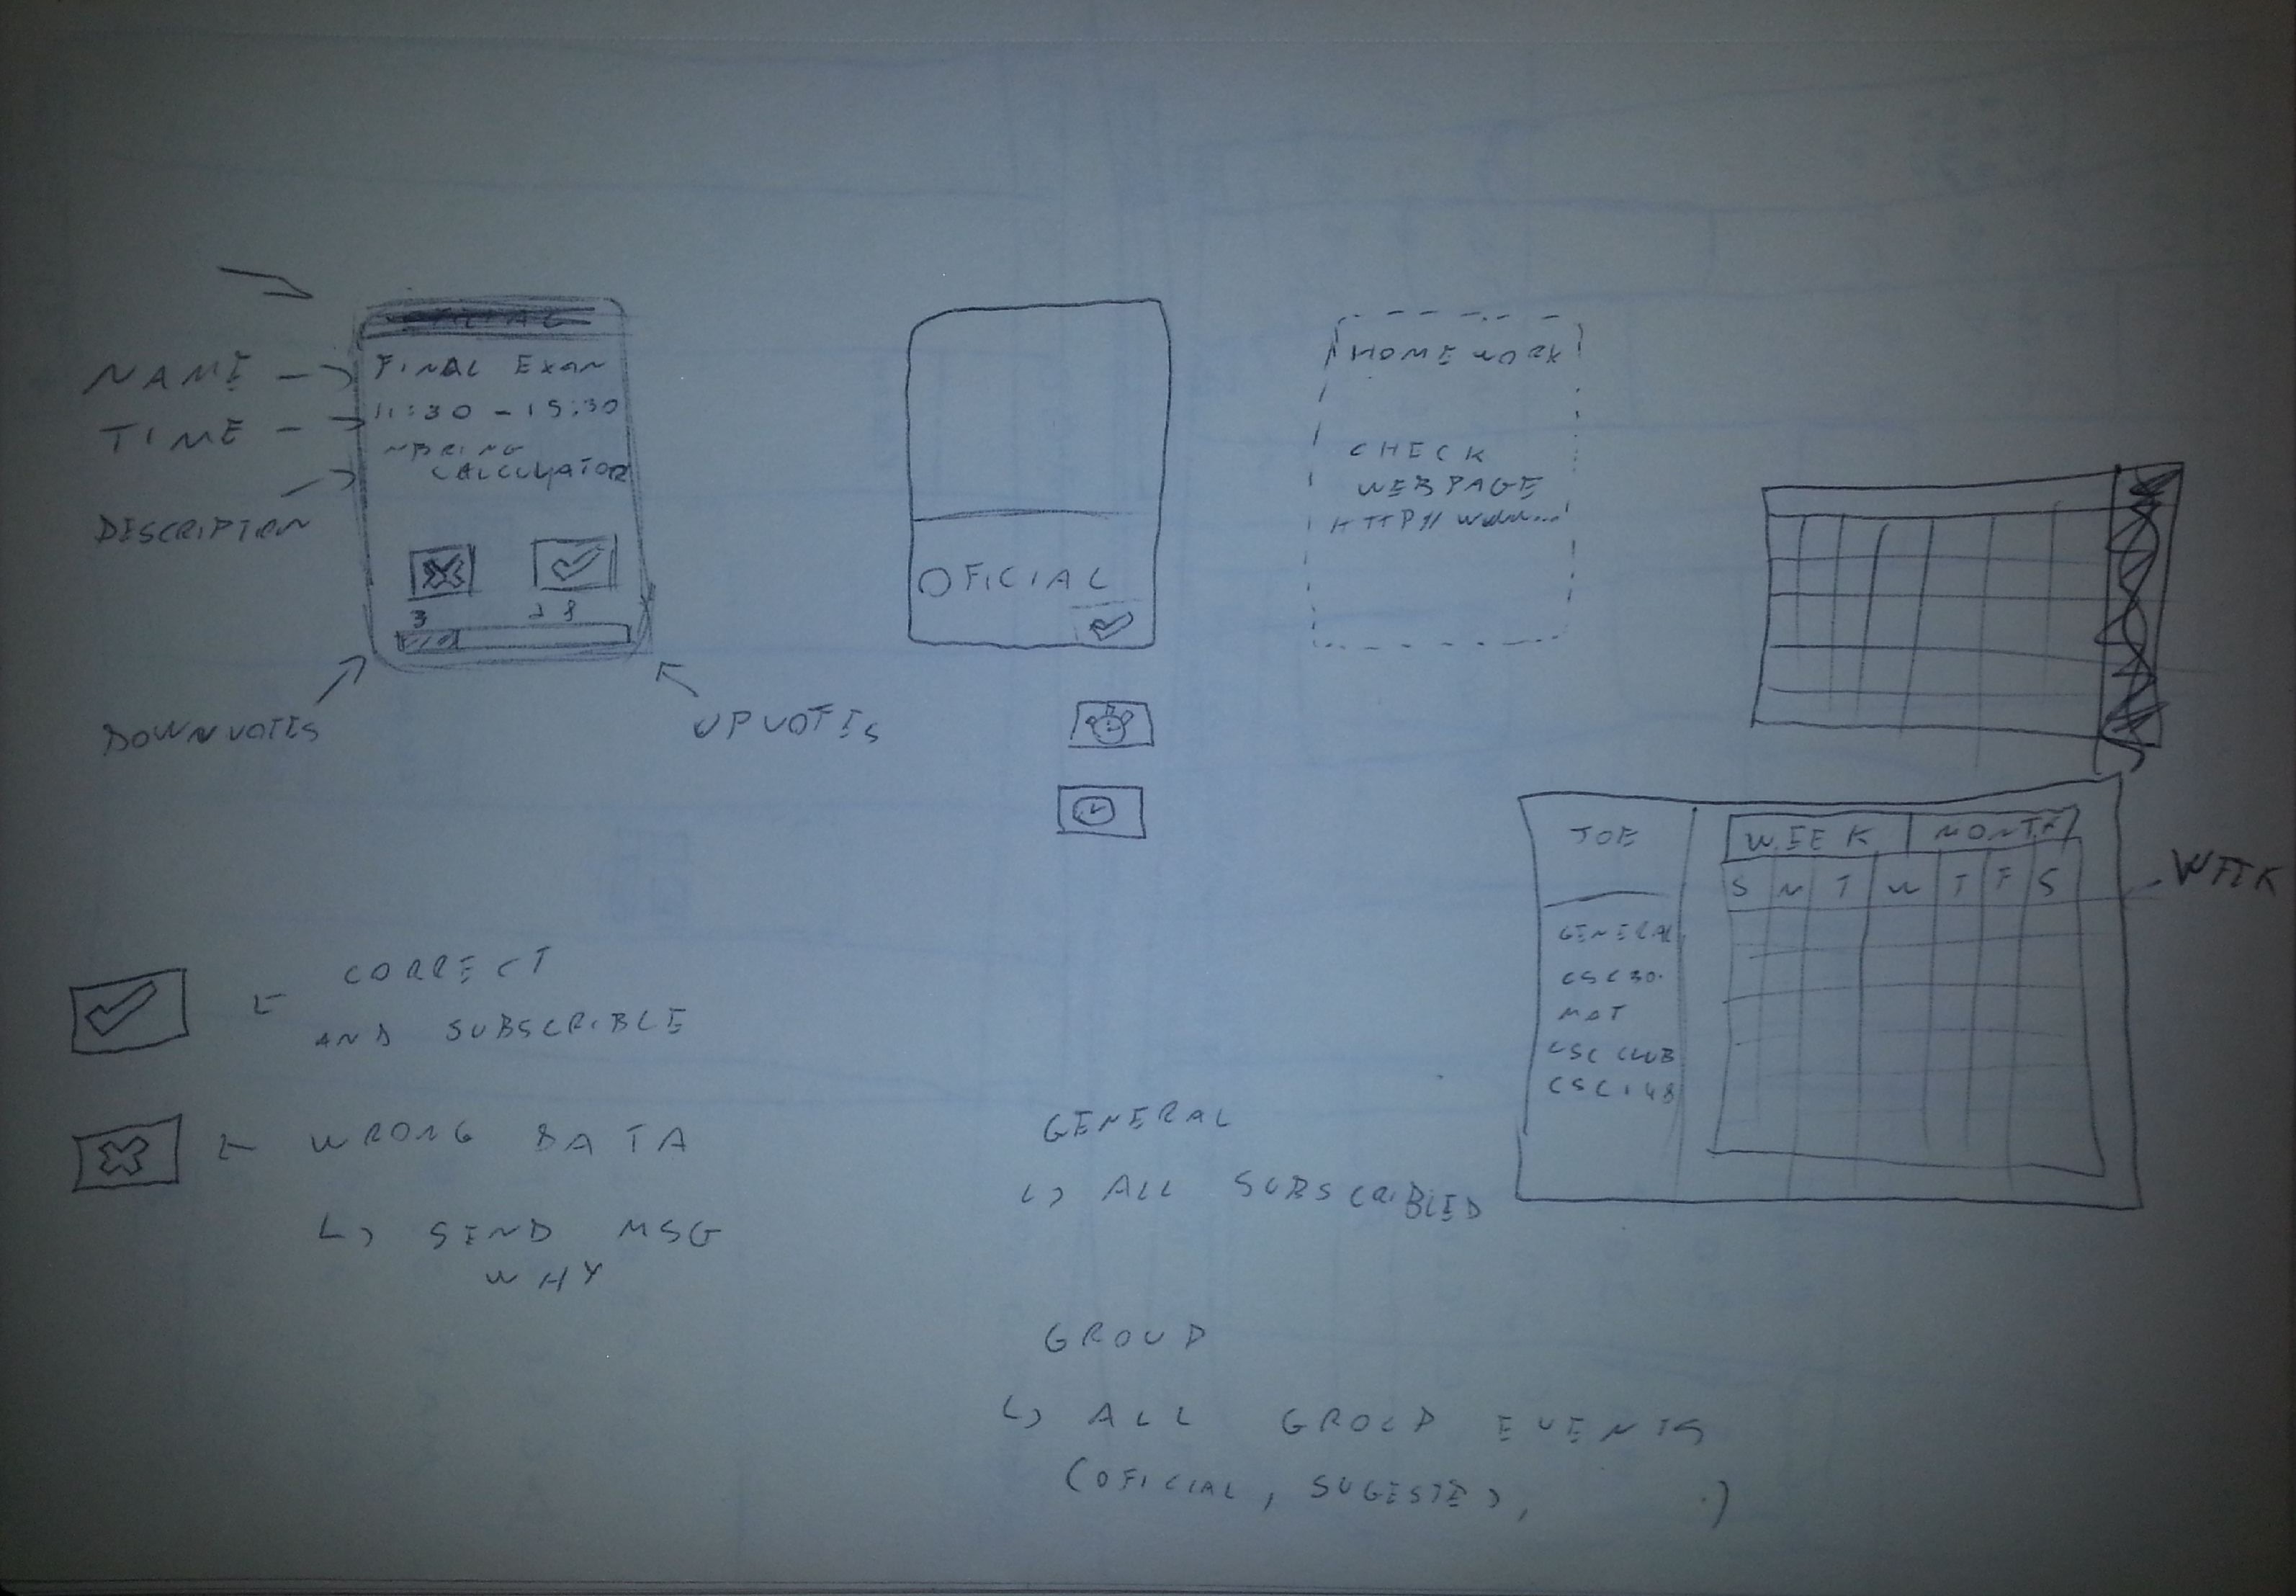 NAME
TIME
DESCRIPTION
FINAL EXAM
11:30 - 15:30
BRING
CALCULATOR
3
28
DOWNVOTES
UPVOTES
OFICIAL
HOMEWORK
CHECK
WEBPAGE
HTTP// WWW...
JOE
GENERAL
CSC30.
MAT
CSC CLUB
CSC148
WEEK
MONTH
S M T W T F S
WEEK
CORRECT
AND SUBSCRIBLE
WRONG DATA
SEND MSG
WHY
GENERAL
ALL SUBSCRIBLED
GROUP
ALL GROUP EVENTS
(OFICIAL, SUGESTED, .)